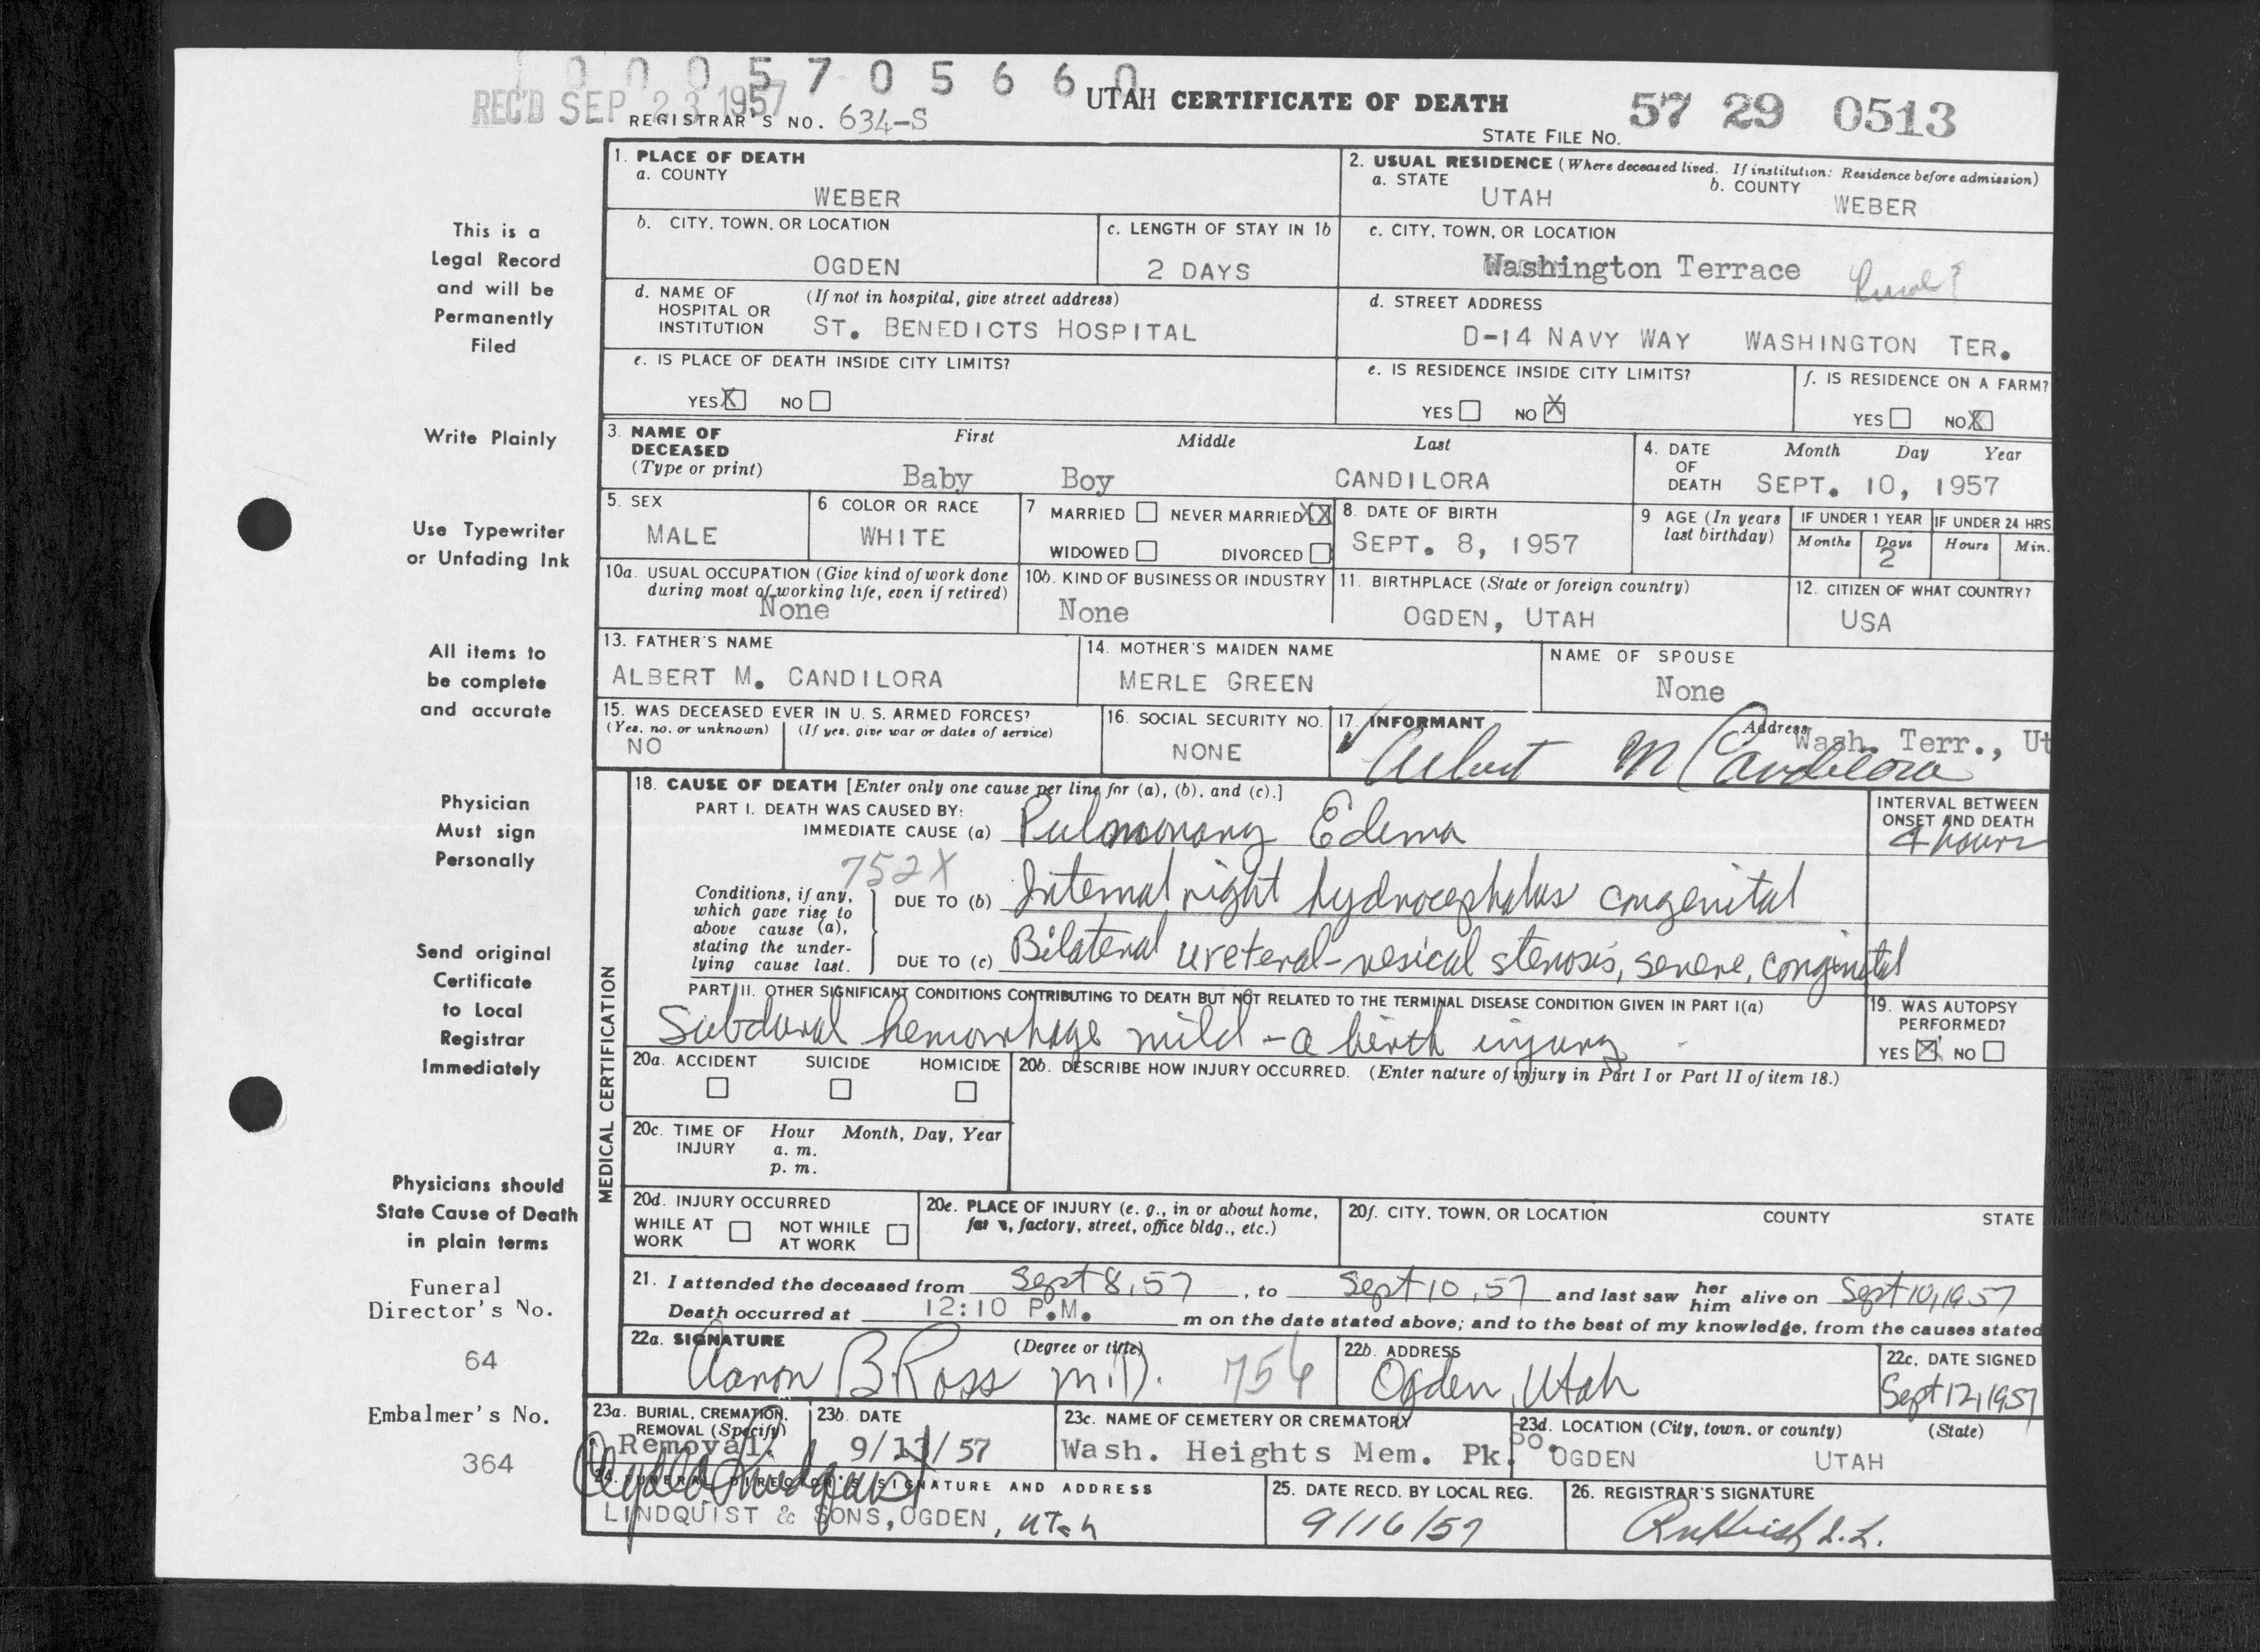 1 0 0 0 5 7 0 5 6 6 0
REC'D SEP 23 1957
UTAH CERTIFICATE OF DEATH
REGISTRAR'S NO. 634-S
STATE FILE NO. 57 29 0513
This is a
Legal Record
and will be
Permanently
Filed
Write Plainly
Use Typewriter
or Unfading Ink
All items to
be complete
and accurate
Physician
Must sign
Personally
Send original
Certificate
to Local
Registrar
Immediately
Physicians should
State Cause of Death
in plain terms
Funeral
Director's No.
64
Embalmer's No.
364
1. PLACE OF DEATH
a. COUNTY
WEBER
2. USUAL RESIDENCE (Where deceased lived. If institution: Residence before admission)
a. STATE
UTAH
b. COUNTY
WEBER
b. CITY, TOWN, OR LOCATION
OGDEN
c. LENGTH OF STAY IN 1b
2 DAYS
c. CITY, TOWN, OR LOCATION
Washington Terrace Rural?
d. NAME OF HOSPITAL OR INSTITUTION
(If not in hospital, give street address)
ST. BENEDICTS HOSPITAL
d. STREET ADDRESS
D-14 NAVY WAY WASHINGTON TER.
e. IS PLACE OF DEATH INSIDE CITY LIMITS?
YES X NO
e. IS RESIDENCE INSIDE CITY LIMITS?
YES NO X
f. IS RESIDENCE ON A FARM?
YES NO X
3. NAME OF DECEASED
(Type or print)
First Middle Last
Baby Boy CANDILORA
4. DATE OF DEATH
Month Day Year
SEPT. 10, 1957
5. SEX
MALE
6 COLOR OR RACE
WHITE
7 MARRIED NEVER MARRIED XX
WIDOWED DIVORCED
8. DATE OF BIRTH
SEPT. 8, 1957
9 AGE (In years last birthday)
IF UNDER 1 YEAR
Months Days
2
IF UNDER 24 HRS
Hours Min.
10a. USUAL OCCUPATION (Give kind of work done during most of working life, even if retired)
None
10b. KIND OF BUSINESS OR INDUSTRY
None
11. BIRTHPLACE (State or foreign country)
OGDEN, UTAH
12. CITIZEN OF WHAT COUNTRY?
USA
13. FATHER'S NAME
ALBERT M. CANDILORA
14. MOTHER'S MAIDEN NAME
MERLE GREEN
NAME OF SPOUSE
None
15. WAS DECEASED EVER IN U. S. ARMED FORCES?
(Yes, no, or unknown) (If yes, give war or dates of service)
NO
16. SOCIAL SECURITY NO.
NONE
17. INFORMANT Address
Wash. Terr., Ut
Albert M Candilora
MEDICAL CERTIFICATION
18. CAUSE OF DEATH [Enter only one cause per line for (a), (b), and (c).]
PART I. DEATH WAS CAUSED BY:
IMMEDIATE CAUSE (a) Pulmonary Edema
INTERVAL BETWEEN ONSET AND DEATH
4 hours
752X
Conditions, if any, which gave rise to above cause (a), stating the underlying cause last.
DUE TO (b) Internal right hydrocephalus congenital
DUE TO (c) Bilateral ureteral-vesical stenosis, severe, congenital
PART II. OTHER SIGNIFICANT CONDITIONS CONTRIBUTING TO DEATH BUT NOT RELATED TO THE TERMINAL DISEASE CONDITION GIVEN IN PART I(a)
Subdural hemorrhage mild - a birth injury
19. WAS AUTOPSY PERFORMED?
YES X NO
20a. ACCIDENT SUICIDE HOMICIDE
20b. DESCRIBE HOW INJURY OCCURRED. (Enter nature of injury in Part I or Part II of item 18.)
20c. TIME OF INJURY
Hour Month, Day, Year
a. m.
p. m.
20d. INJURY OCCURRED
WHILE AT WORK NOT WHILE AT WORK
20e. PLACE OF INJURY (e. g., in or about home, farm, factory, street, office bldg., etc.)
20f. CITY, TOWN, OR LOCATION COUNTY STATE
21. I attended the deceased from Sept 8, 57, to Sept 10, 57 and last saw her him alive on Sept 10, 1957
Death occurred at 12:10 P.M. m on the date stated above; and to the best of my knowledge, from the causes stated
22a. SIGNATURE (Degree or title)
Aaron B Ross M.D. 756
22b. ADDRESS
Ogden, Utah
22c. DATE SIGNED
Sept 12, 1957
23a. BURIAL, CREMATION, REMOVAL (Specify)
Removal
23b. DATE
9/11/57
23c. NAME OF CEMETERY OR CREMATORY
Wash. Heights Mem. Pk.
23d. LOCATION (City, town, or county) (State)
SO. OGDEN UTAH
24. FUNERAL DIRECTOR'S SIGNATURE AND ADDRESS
LINDQUIST & SONS, OGDEN, UTah
25. DATE RECD. BY LOCAL REG.
9/16/57
26. REGISTRAR'S SIGNATURE